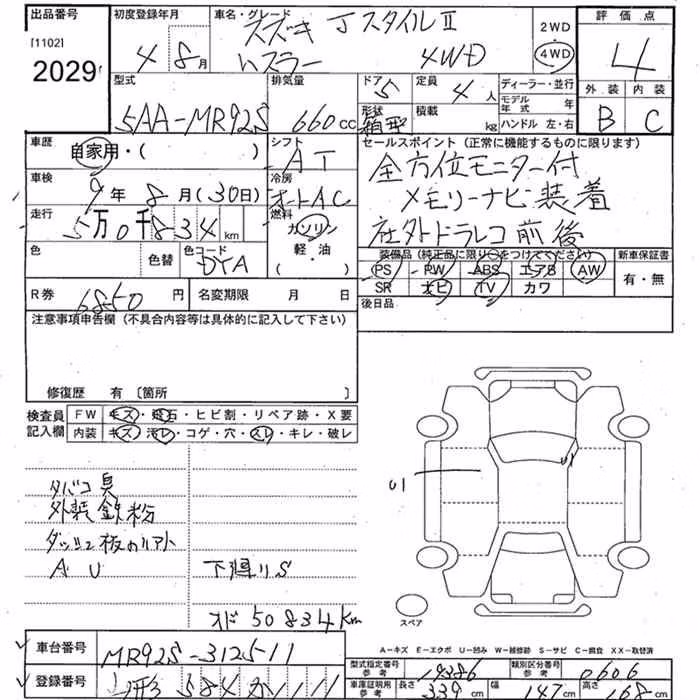 出品番号 初度登録年月 車名・グレード 評価点
[1102]
2029
4 8月
スズキ JスタイルⅡ
ハスラー 4WD
2WD
4WD
4
外装 内装
B C
型式 排気量 ドア 定員 ディーラー・並行
5AA-MR92S 660cc 5 4人 モデル年式 年
形状 積載 ハンドル 左・右
箱型 kg
車歴 シフト セールスポイント (正常に機能するものに限ります)
自家用・( ) AT
全方位モニター付
メモリーナビ装着
社外ドラレコ前後
車検 冷房
9年 8月(30日) オートAC
走行 燃料
5万0千834km ガソリン
軽・油
色 色替 色コード
DYA
装備品(純正品に限り○をつけてください) 新車保証書
PS PW ABS エアB AW 有・無
SR ナビ TV カワ
R券 6850円 名変期限 月 日
後日品
注意事項申告欄 (不具合内容等は具体的に記入して下さい)
修復歴 有〔箇所 〕
検査員記入欄
FW キズ・飛石・ヒビ割・リペア跡・X要
内装 キズ・汚レ・コゲ・穴・スレ・キレ・破レ
タバコ臭
外装鉄粉
A U
下廻りS
オド50834km
U1
U1
スペア
A-キズ E-エクボ U-凹み W-補修跡 S-サビ C-腐食 XX-取替済
車台番号 MR92S-312511
型式指定番号 参考 19386 類別区分番号 参考 0606
登録番号
車庫証明用 参考 長さ 339cm 幅 147cm 高さ 168cm